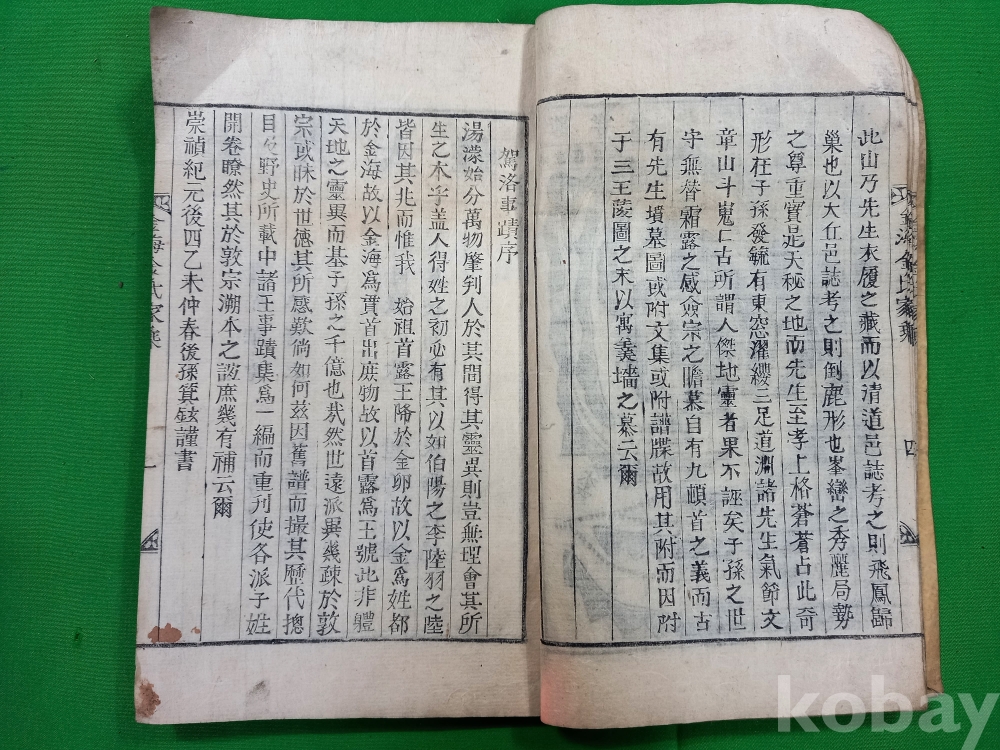 此山乃先生衣履之藏而以清道邑誌考之則飛鳳歸
巢也以大丘邑誌考之則倒鹿形也峯巒之秀麗局勢
之尊重實是天秘之地而先生至孝上格蒼蒼占此奇
形在子孫發毓有東窓濯纓三足道淵諸先生氣節文
章山斗嵬□古所謂人傑地靈者果不誣矣子孫之世
守無替霜露之感僉宗之瞻慕自有九頓首之義而古
有先生墳墓圖或附文集或附譜牒故用其附而因附
于三王陵圖之末以寓羹墻之慕云爾
金海金氏家乘
四
駕洛事蹟序
湯濛始分萬物肇判人於其間得其靈異則豈無理會其所
生之本乎盖人得姓之初必有其以如伯陽之李陸羽之陸
皆因其兆而惟我 始祖首露王降於金卵故以金爲姓都
於金海故以金海爲貫首出庶物故以首露爲王號此非軆
天地之靈異而基子孫之千億也㢤然世遠派異幾疎於敦
宗或昧於世德其所感歎倘如何兹因舊譜而撮其歷代揔
目及野史所載中諸王事蹟集爲一編而重刊使各派子姓
開卷瞭然其於敦宗溯本之誼庶幾有補云爾
崇禎紀元後四乙未仲春後孫箕鉉謹書
金海金氏家乘
一
kobay